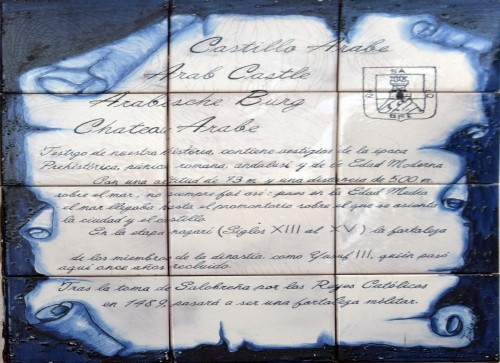 Castillo Arabe
Arab Castle
Arabische Burg
Chateau Arabe
SA
BRE
Testigo de nuestra historia, contiene vestigios de la época
Prehistórica, púnica, romana, andalusí y de la Edad Moderna
Con una altitud de 73 m. y una distancia de 500 m.
sobre el mar, no siempre fué así: pues en la Edad Media
el mar llegaba hasta el promontorio sobre el que se asienta
la ciudad y el castillo.
En la etapa nazarí (Siglos XIII al XV) la fortaleza
de los miembros de la dinastía, como Yusuf III, quién pasó
aquí once años recluido.
Tras la toma de Salobreña por los Reyes Católicos
en 1489, pasará a ser una fortaleza militar.